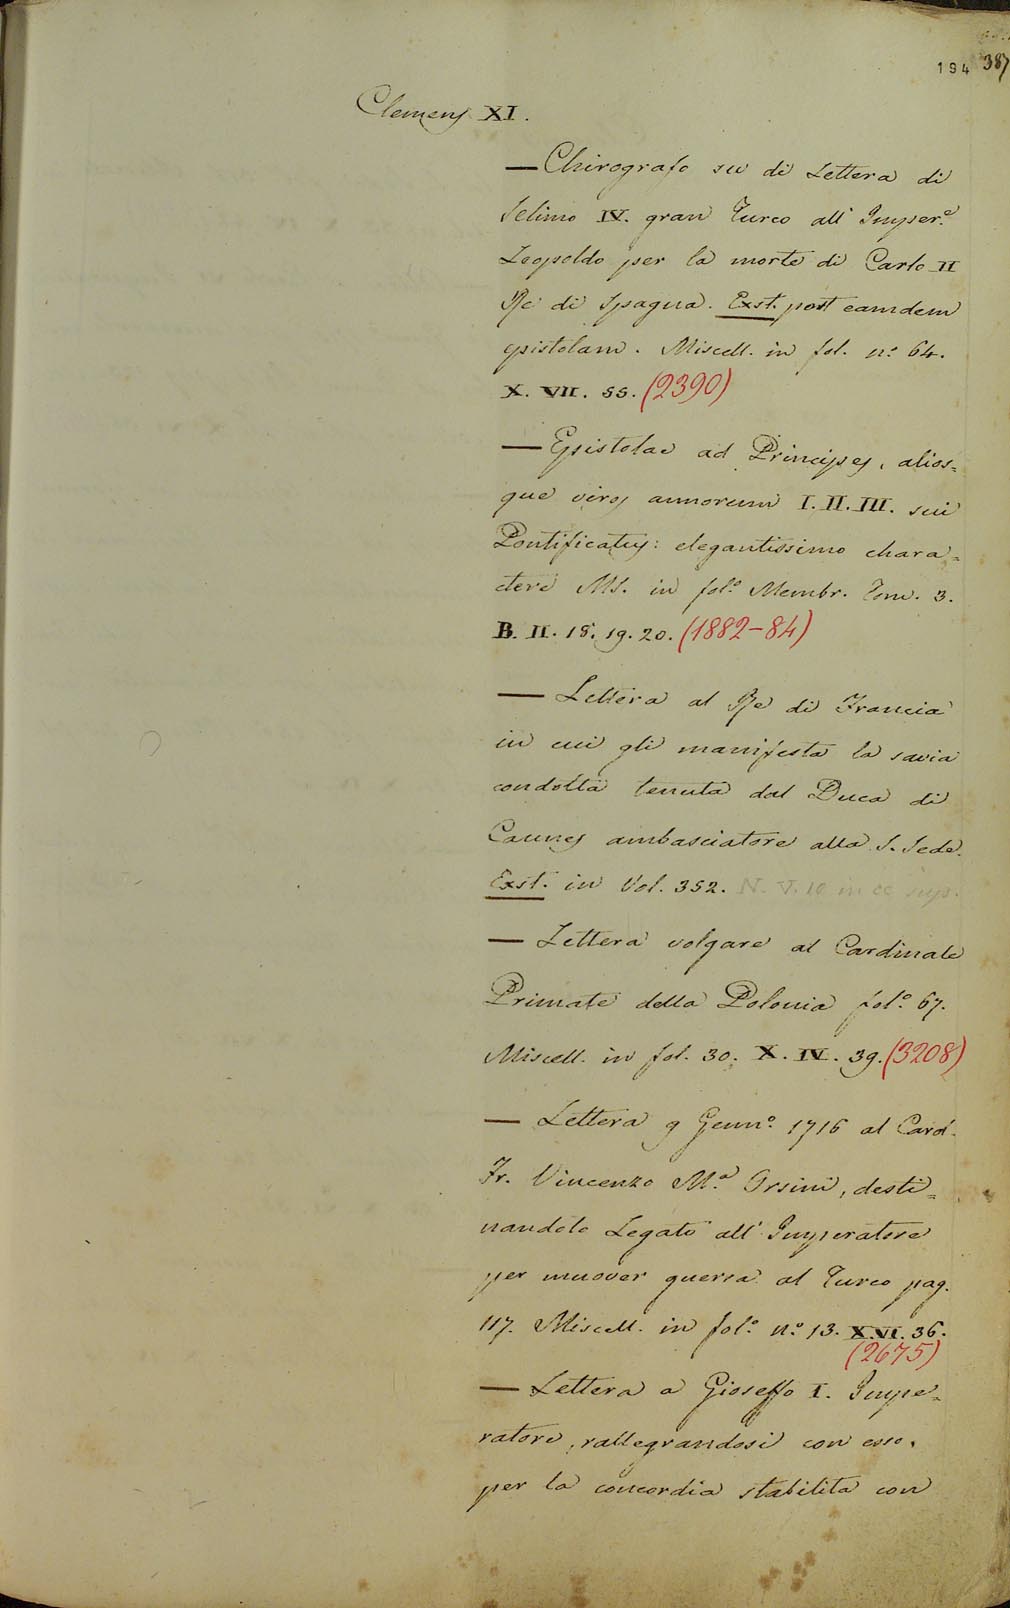 194 387
Clemens XI.
— Chirografo su di Lettera di
Selimo IV. gran Turco all' Imper.e
Leopoldo per la morte di Carlo II
Re di Spagna. Exst. post eamdem
epistolam. Miscell. in fol. n.o 64.
X. VII. 55. (2390)
— Epistolae ad Principes, alios=
que viros annorum I. II. III. sui
Pontificatus: elegantissimo chara=
ctere MS. in fol.o Membr. Tom. 3.
B. II. 18. 19. 20. (1882-84)
— Lettera al Re di Francia
in cui gli manifesta la savia
condotta tenuta dal Duca di
Caunes ambasciatore alla S. Sede.
Exst. in Vol. 352. N. V. 10 in
— Lettera volgare al Cardinale
Primate della Polonia fol.o 67.
Miscell. in fol. 30. X. IV. 39. (3208)
— Lettera 9 Genn.o 1716 al Card.
Fr. Vincenzo M.a Orsini, desti=
nandolo Legato all' Imperatore
per muover guerra al Turco pag.
117. Miscell. in fol.o n.o 13. X. VI. 36.
(2675)
— Lettera a Gioseffo I. Impe=
ratore, rallegrandosi con esso,
per la concordia stabilita con